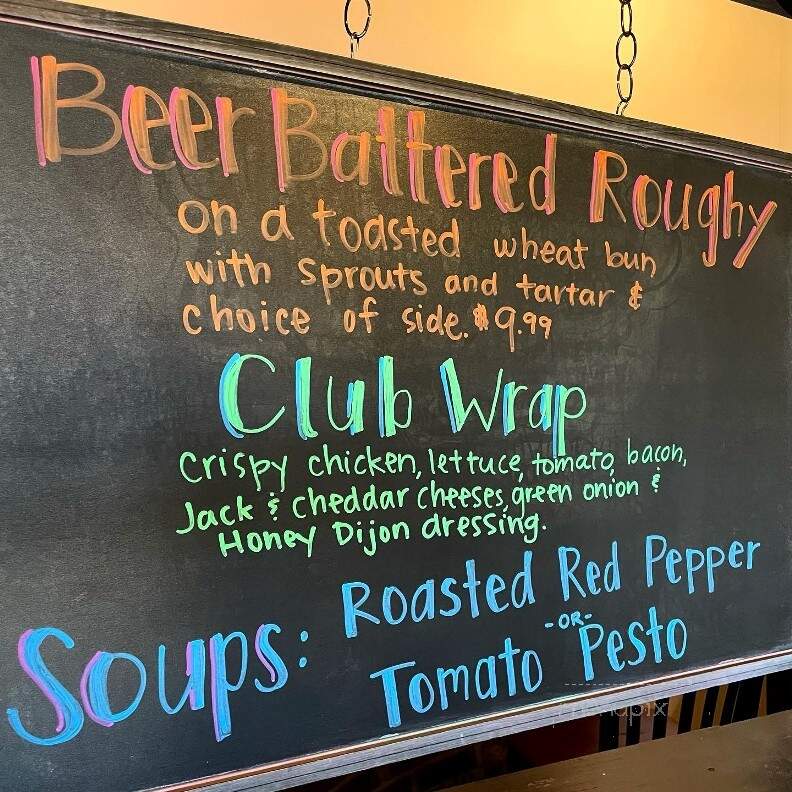 Beer Battered Roughy
on a toasted wheat bun
with sprouts and tartar &
choice of side. $9.99
Club Wrap
Crispy chicken, lettuce, tomato, bacon,
Jack & cheddar cheeses, green onion &
Honey Dijon dressing.
Soups: Roasted Red Pepper
-OR-
Tomato Pesto
menupix